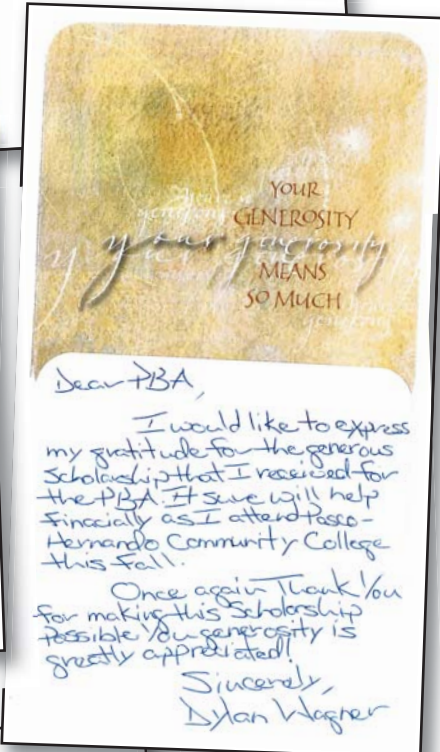 YOUR
GENEROSITY
your generosity
MEANS
SO MUCH
Dear PBA,
I would like to express
my gratitude for the generous
Scholarship that I received for
the PBA. It sure will help
finacially as I attend Pasco-
Hernando Community College
this Fall.
Once again Thank You
for making this Scholarship
Possible. You generosity is
greatly appreciated!
Sincerely,
Dylan Wagner